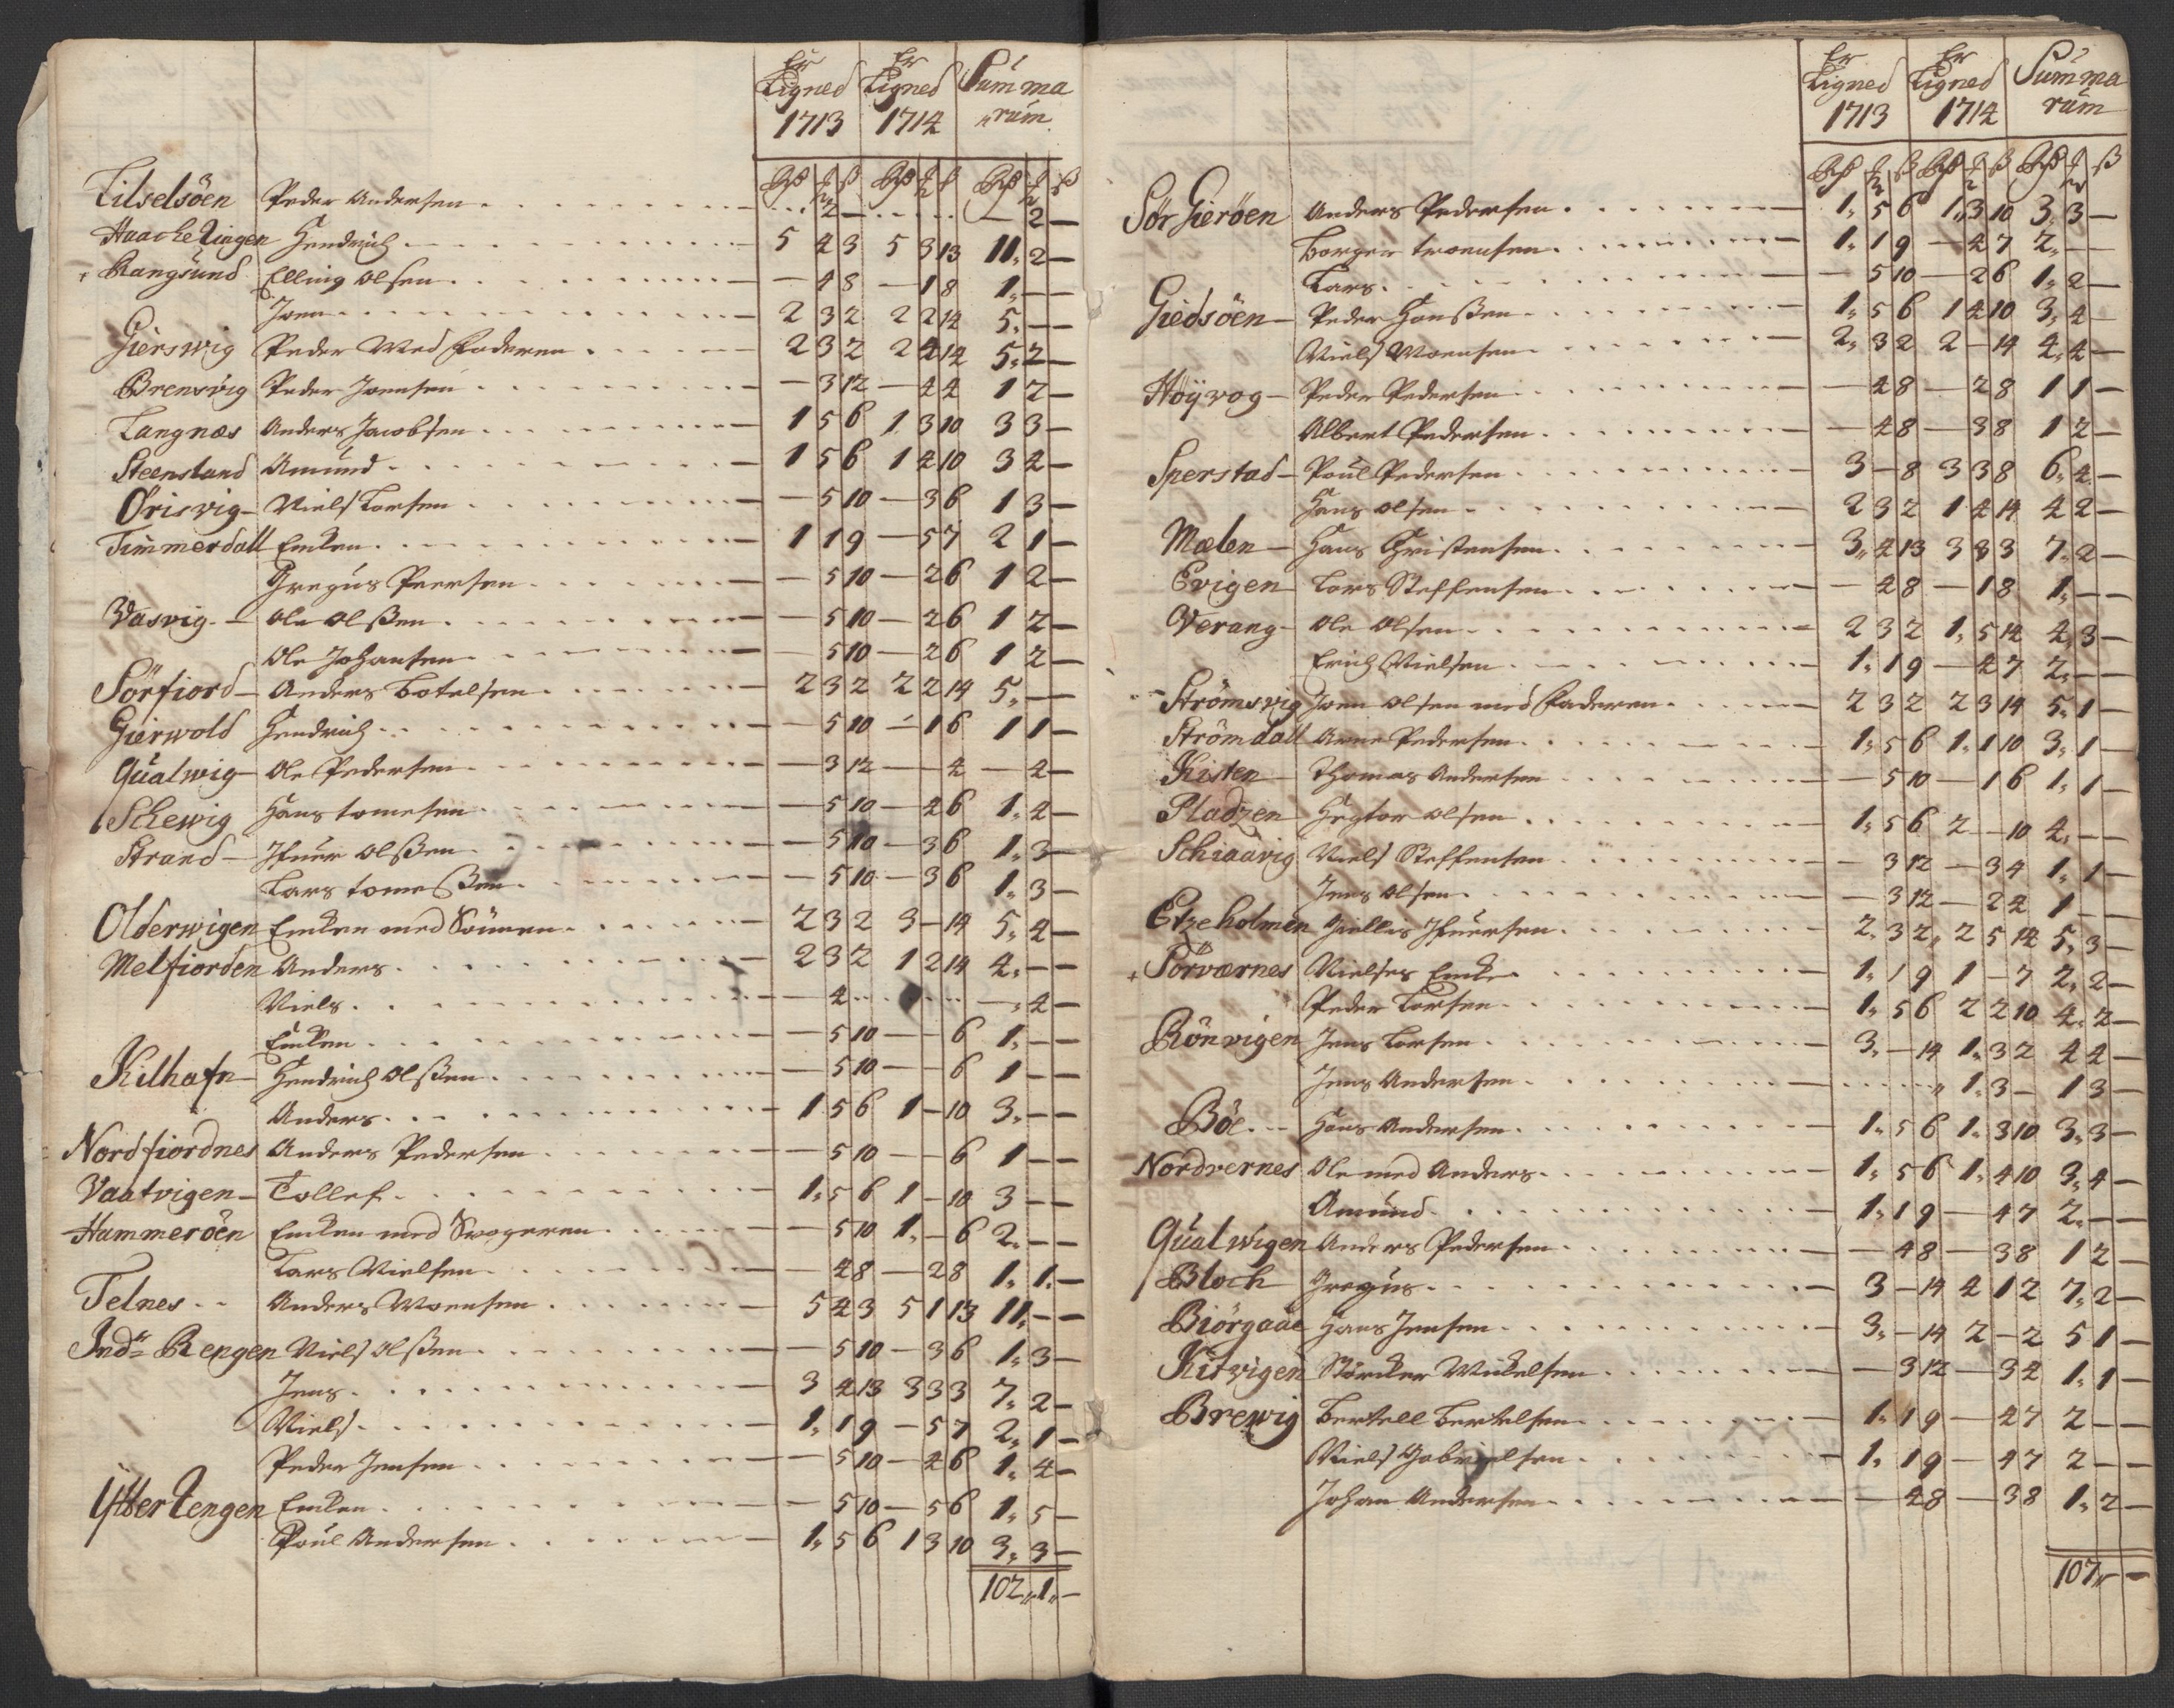 Er Ligned 1713 Er Ligned 1714 Summa rum
Rd ß Rd ß Rd ß
Tilselsöen Peder Andersen - 2 - - 2 -
Haachelingen Hendrich 5 4 3 5 3 13 11 2 -
Rangsund Elling Olsen - 4 8 - 1 8 1 - -
Joen 2 3 2 2 2 14 5 - -
Gierswig Peder Med Faderen 2 3 2 2 4 14 5 2 -
Brensvig Peder Joensen - 3 12 - 4 4 1 2 -
Langnæs Anders Jacobsen 1 5 6 1 3 10 3 3 -
Steensland Amund 1 5 6 1 4 10 3 4 -
Öriswig Niels Larsen - 5 10 - 3 6 1 3 -
Timmerdall Enken 1 1 9 - 5 7 2 1 -
Gregus Peersen - 5 10 - 2 6 1 2 -
Vasvig Ole Olssen - 5 10 - 2 6 1 2 -
Ole Johansen - 5 10 - 2 6 1 2 -
Sörfiord Anders Botelsen 2 3 2 2 2 14 5 - -
Gierwold Hendrich - 5 10 - 1 6 1 1 -
Qualwig Ole Pedersen - 3 12 - - 4 - 4 -
Schewig Hans Tomesen - 5 10 - 4 6 1 4 -
Strand Ifuer Olssen - 5 10 - 3 6 1 3 -
Lars Tomessen - 5 10 - 3 6 1 3 -
Olderwigen Enken med Sönnen 2 3 2 3 - 14 5 4 -
Melfiorden Anders 2 3 2 1 2 14 4 - -
Niels - 4 - 4 -
Enken - 5 10 - - 6 1 - -
Kilhafn Hendrich Olssen - 5 10 - - 6 1 - -
Anders 1 5 6 1 - 10 3 - -
Nordfiordnes Anders Pedersen - 5 10 - - 6 1 - -
Vaatvigen Tollef 1 5 6 1 - 10 3 - -
Hammeröen Enken med Svogeren - 5 10 1 - 6 2 - -
Lars Nielsen - 4 8 - 2 8 1 1 -
Telnes Anders Moensen 5 4 3 5 1 13 11 - -
Indr Rengen Niels Olssen - 5 10 - 3 6 1 3 -
Jens 3 4 13 3 3 3 7 2 -
Niels 1 1 9 - 5 7 2 1 -
Peder Jensen - 5 10 - 4 6 1 4 -
Ytter Lengen Enken - 5 10 - 5 6 1 5 -
Poul Andersen 1 5 6 1 3 10 3 3 -
102 1 -
Er Ligned 1713 Er Ligned 1714 Summa rum
Rd ß Rd ß Rd ß
Sör Gieröen Anders Pedersen 1 5 6 1 3 10 3 3 -
Borger 1 1 9 - 4 7 2 - -
Lars - 5 10 - 2 6 1 2 -
Giedsöen Peder Hanssen 1 5 6 1 4 10 3 4 -
Niels Moensen 2 3 2 2 - 14 4 4 -
Höyvog Peder Pedersen - 4 8 - 2 8 1 1 -
Albert Pedersen - 4 8 - 3 8 1 2 -
Sperstad Poul Pedersen 3 - 8 3 3 8 6 4 -
Hans Olsen 2 3 2 1 4 14 4 2 -
Mælen Hans Christensen 3 4 13 3 3 3 7 2 -
Evigen Lars Steffensen - 4 8 - 1 8 1 - -
Verang Ole Olsen 2 3 2 1 5 14 4 3 -
Erich Nielsen 1 1 9 - 4 7 2 - -
Strömsvig Joen Olsen med Faderen 2 3 2 2 3 14 5 1 -
Strömdall Arne Pedersen 1 5 6 1 1 10 3 1 -
Kisten Thomas Andersen - 5 10 - 1 6 1 1 -
Pladzen Hegtor Olsen 1 5 6 2 - 10 4 - -
Schiaavig Niels Steffensen - 3 12 - 3 4 1 1 -
Jens Olsen - 3 12 - 2 4 1 - -
Etzeholmen Giellis Ifuersen 2 3 2 2 5 14 5 3 -
Sörværnes Nielses Enke 1 1 9 1 - 7 2 2 -
Peder Larsen 1 5 6 2 2 10 4 2 -
Rönvigen Jens Larsen 3 - 14 1 3 2 4 4 -
Jens Andersen 1 3 - 1 3 -
Böe Hans Andersen 1 5 6 1 3 10 3 3 -
Nordvernes Ole med Anders 1 5 6 1 4 10 3 4 -
Amund 1 1 9 - 4 7 2 - -
Qualwigen Anders Pedersen - 4 8 - 3 8 1 2 -
Bloch Gregus 3 - 14 4 1 2 7 2 -
Biörgaae Hans Jensen 3 - 14 2 - 2 5 1 -
Kitvigen Störcker Mickelsen - 3 12 - 3 4 1 1 -
Brewig Bertell Bertelsen 1 1 9 - 4 7 2 - -
Niels Gabrielsen 1 1 9 - 4 7 2 - -
Johan Andersen - 4 8 - 3 8 1 2 -
107 - -